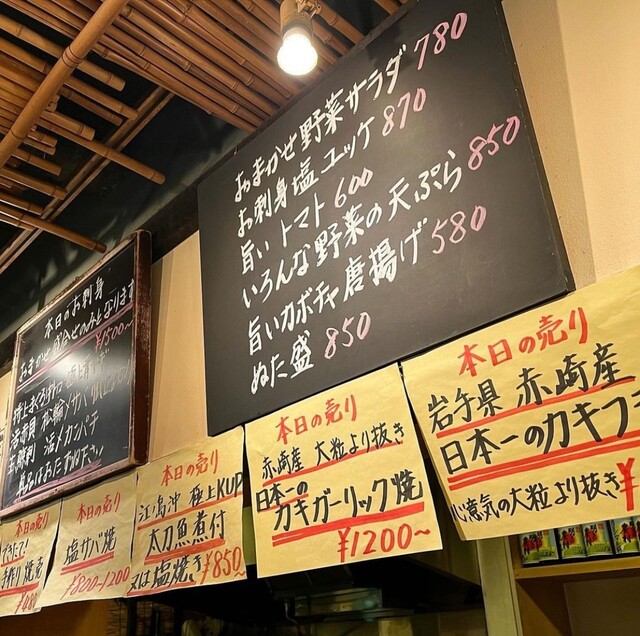 おまかせ野菜サラダ 780
お刺身塩ユッケ 870
旨いトマト 600
いろんな野菜の天ぷら 850
旨いカボチャ唐揚げ 580
ぬた盛 850
本日のお刺身
おまかせ盛合せのみとなります
¥1500〜
単品はおたずね下さい
本日の売り
手作り
本日の売り
塩サバ焼
¥800-1200
本日の売り
江ノ島沖 極上KUP
太刀魚煮付
又は塩焼き ¥850〜
本日の売り
赤崎産 大粒より抜き
日本一の
カキガーリック焼
¥1200〜
本日の売り
岩手県 赤崎産
日本一のカキフ
心意気の大粒より抜き